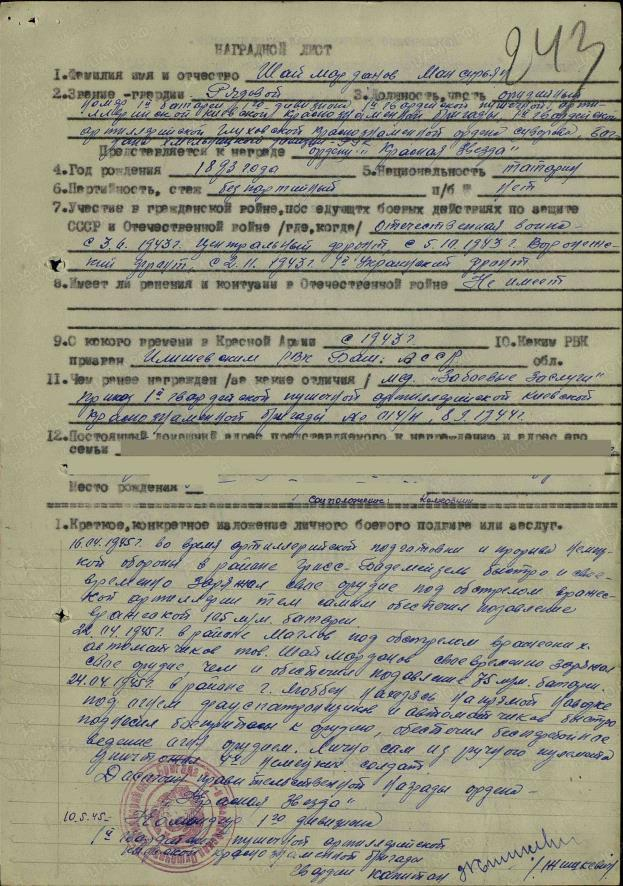 243
НАГРАДНОЙ ЛИСТ
1.Фамилия имя и отчество Шаймарданов Мансурьян
2.Звание -гвардии- Рядовой 3.Должность,часть орудийный
номер 1й батареи, 1го дивизиона, 1й гвардейской пушечной арти-
ллерийской Киевской Краснознаменной бригады, 1й гвардейской
артиллерийской Глуховской Краснознаменной ордена Суворова, Бог-
дана Хмельницкого дивизии РГК
Представляется к награде ордену "Красная Звезда"
4.Год рождения 1893 года 5.Национальность татарин
6.Партийность, стаж беспартийный п/б № нет
7.Участие в гражданской войне,пос едующтх боевых действиях по защите
СССР и Отечественной войне /где,когда/ Отечественная война-
с 3.6. 1943г. Центральный фронт, с 5.10.1943г. Воронеж-
ский фронт, с 2.11.1943г. 1й Украинский фронт
8.Имеет ли ранения и контузии в Отечественной войне Не имеет
9.С кокого времени в Красной Армии с 1943г. 10.Каким РВК
призван Илишевским РВК Баш. АССР обл.
11.Чем ранее награжден /за какие отличия/ мед. "За боевые заслуги"
приказ 1й гвардейской пушечной артиллерийской Киевской
Краснознаменной бригады № 014/н, 8.9.1944г.
12.Постоянный домашний адрес представляемого к награждению и адрес его
семьи
Место рождения
Соцположение: Колхозник
1.Краткое,конкретное изложение личного боевого подвига или заслуг.
16.04.1945г. во время артиллерийской подготовки и прорыва немец-
кой обороны в районе быстро и свое-
временно заряжал свое орудие под обстрелом вражес-
кой артиллерии тем самым обеспечил подавление
вражеской 105 м/м. батареи.
22.04.1945г. в районе под обстрелом вражеских
автоматчиков тов. Шаймарданов своевременно заряжал
свое орудие, чем и обеспечил подавление 75 м/м. батареи.
24.04.1945г. в районе г. находясь на прямой наводке
под огнем фауспатронщиков и автоматчиков быстро
подносил боеприпасы к орудию, обеспечил бесперебойное
ведение огня орудием. Лично сам из ручного пулемета
уничтожил 4х немецких солдат.
Достоин правительственной награды ордена-
"Красная Звезда"
10.5.45- Командир 1го дивизиона
1й гвардейской пушечной артиллерийской
Киевской краснознаменной бригады
Гвардии капитан /Жишкевич/